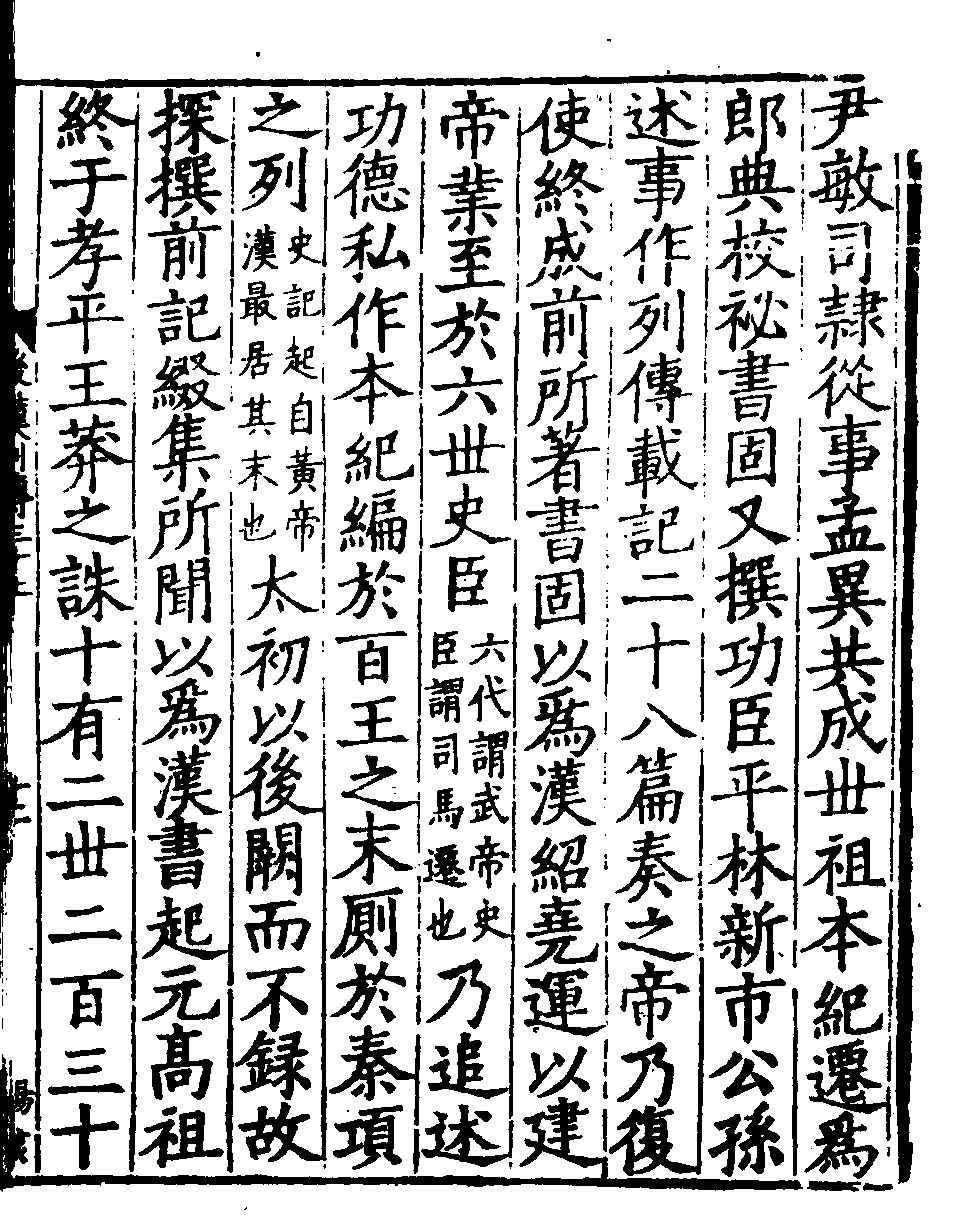 尹敏司隷從事孟異共成丗祖本紀遷爲
郎典校祕書固又撰功臣平林新市公孫
述事作列傳載記二十八篇奏之帝乃復
使終成前所著書固以爲漢紹堯運以建
帝業至於六丗史臣六代謂武帝史臣謂司馬遷也乃追述
功德私作本紀編於百王之末厠於秦項
之列史記起自黃帝漢最居其末也太初以後闕而不録故
探撰前記綴集所聞以爲漢書起元髙祖
終于孝平王莽之誅十有二丗二百三十